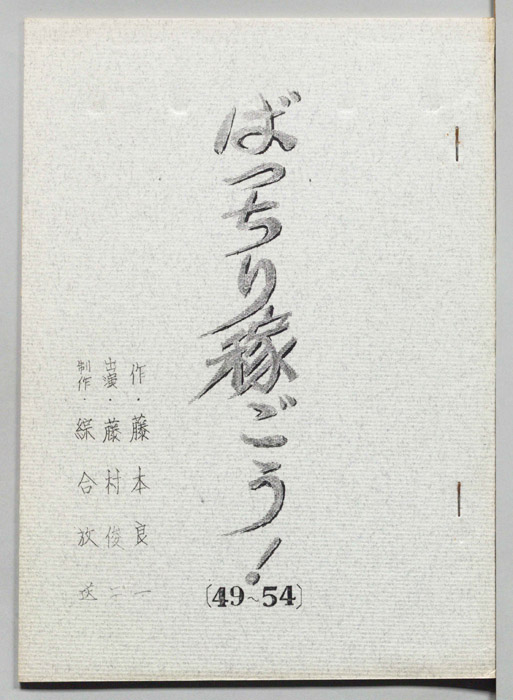 ばっちり稼ごう!
〔49~54〕
作・藤本良一
出演・藤村俊二
制作・綜合放送